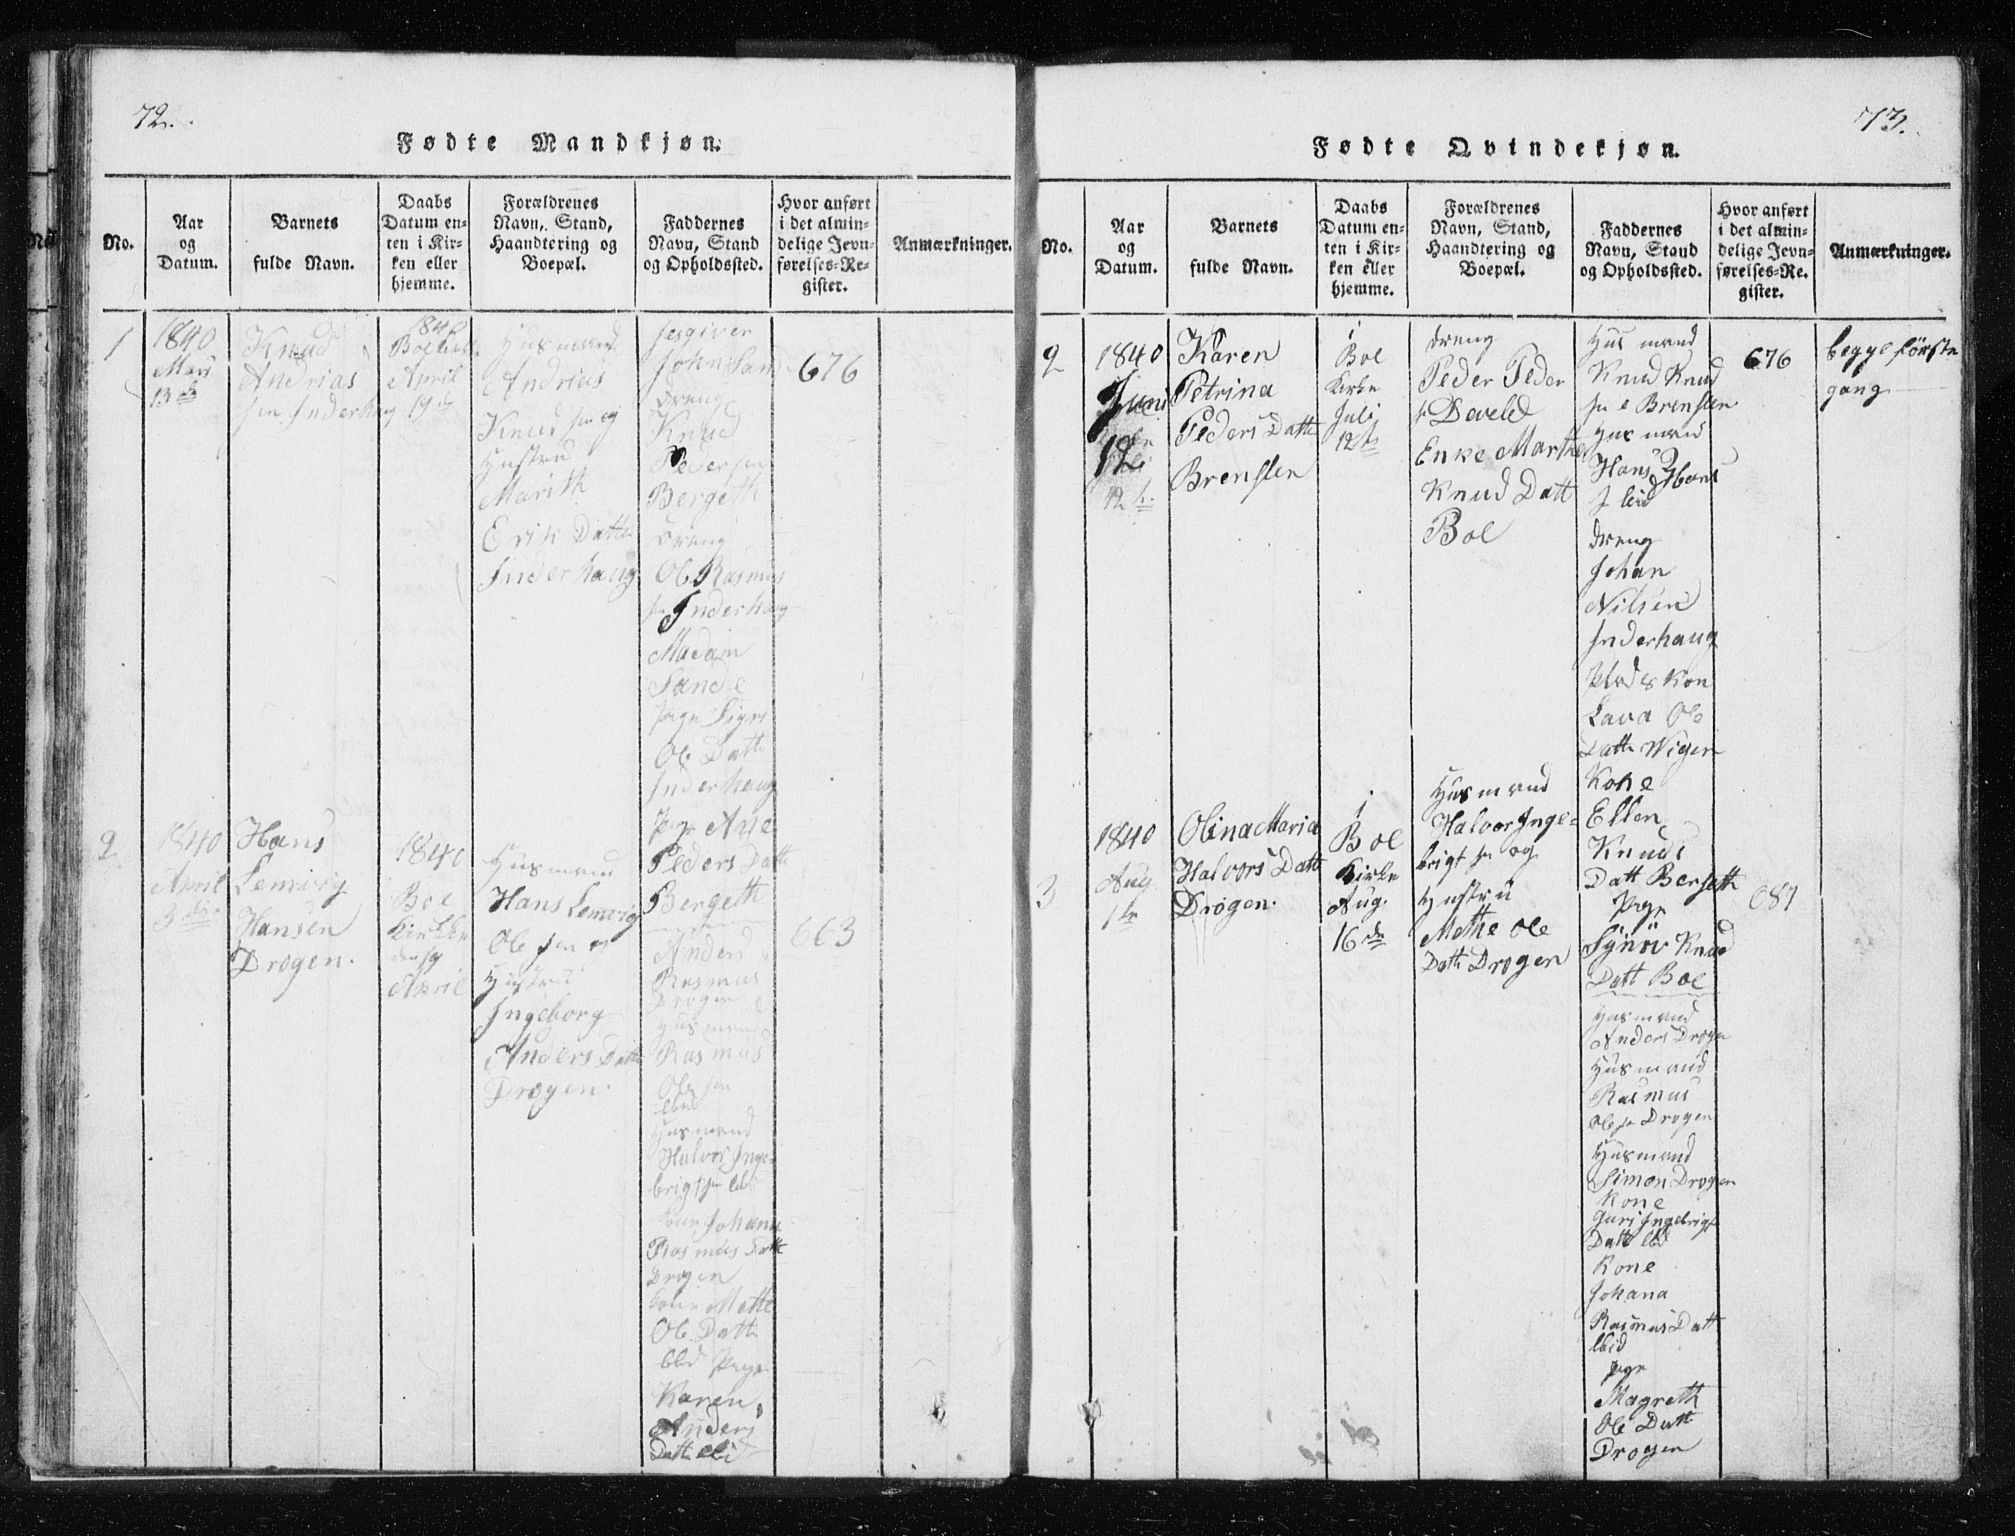 72.
Fødte Mandkjøn.
No.
Aar
og
Datum.
Barnets
fulde Navn.
Daabs
Datum en-
ten i Kir-
ken eller
hjemme.
Forældrenes
Navn, Stand,
Haandtering og
Boepæl.
Faddernes
Navn, Stand
og Opholdssted.
Hvor anført
i det almin-
delige Jevn-
førelses-Re-
gister.
Anmærkninger.
1
1840
13de
Knud
Andrias
sen Inderhaug
1840
April
19de
Husmand
Andrias
Knud sen og
Hustru
Marith
Erik Datte
Inderhaug
John Sand
Dreng
Knud
Pedersen
Bergeth
Dreng
Ole Rasmus
sen Inderhaug
Madam
Sande
Pige Sigri
Ole Datte
Inderhaug
Pige Ane
Peders Datte
Bergeth
676
2
1840
April
3die
Hans
Lemvig
Hansen
Drogen.
1840
Boe
Kirke
den 19
April
Husmand
Hans Lemvig
Ole sen og
Hustru
Ingeborg
Anders Datte
Drogen.
Anders
Rasmus
Drogen
Husmand
Rasmus
Ole sen
ibid
Husmand
Halvor Inge-
brigt sen ibid
Kone Johana
Rasmus Datte
Drogen
Kone Mette
Ole Datte
ibid Pige
Karen
Anders
Datte ibid
663
73.
Fødte Qvindekjøn.
No.
Aar
og
Datum.
Barnets
fulde Navn.
Daabs
Datum en-
ten i Kir-
ken eller
hjemme.
Forældrenes
Navn, Stand,
Haandtering og
Boepæl.
Faddernes
Navn, Stand
og Opholdssted.
Hvor anført
i det almin-
delige Jevn-
førelses-Re-
gister.
Anmærkninger.
2
1840
Juni
12
Karen
Petrina
Peders Datte
Brensten
i
Boe
Kirke
Juli
12te
Dreng
Peder Peder
s Develd
Enke Marthe
Knud Datt
Boe
Husmand
Knud Knud
sen Brensten
Husmand
Hans Hans
Dreng
Johan
Nilsen
Inderhaug
Lava Ole
Datte Wigen
Kone
Ellen
Knuds
Datt Berseth
Pige
Synøv Knud
Datt Boe
676
begge første
gang
3
1840
Aug
1te
Olina Maria
Halvors Datte
Drogen.
i
Boe
Kirke
Aug.
16de
Husmand
Halvor Inge-
brigt sen og
Hustru
Methe Ole
Datte Drogen
Husmand
Anders Drogen
Husmand
Rasmus
Ole sen Drogen
Husmand
Simon Drogen
Kone
Guri Ingebrigt
Datte ibid
Kone
Johana
Rasmus Datt
ibid
Pige
Magreth
Ole Datt
Drogen
687